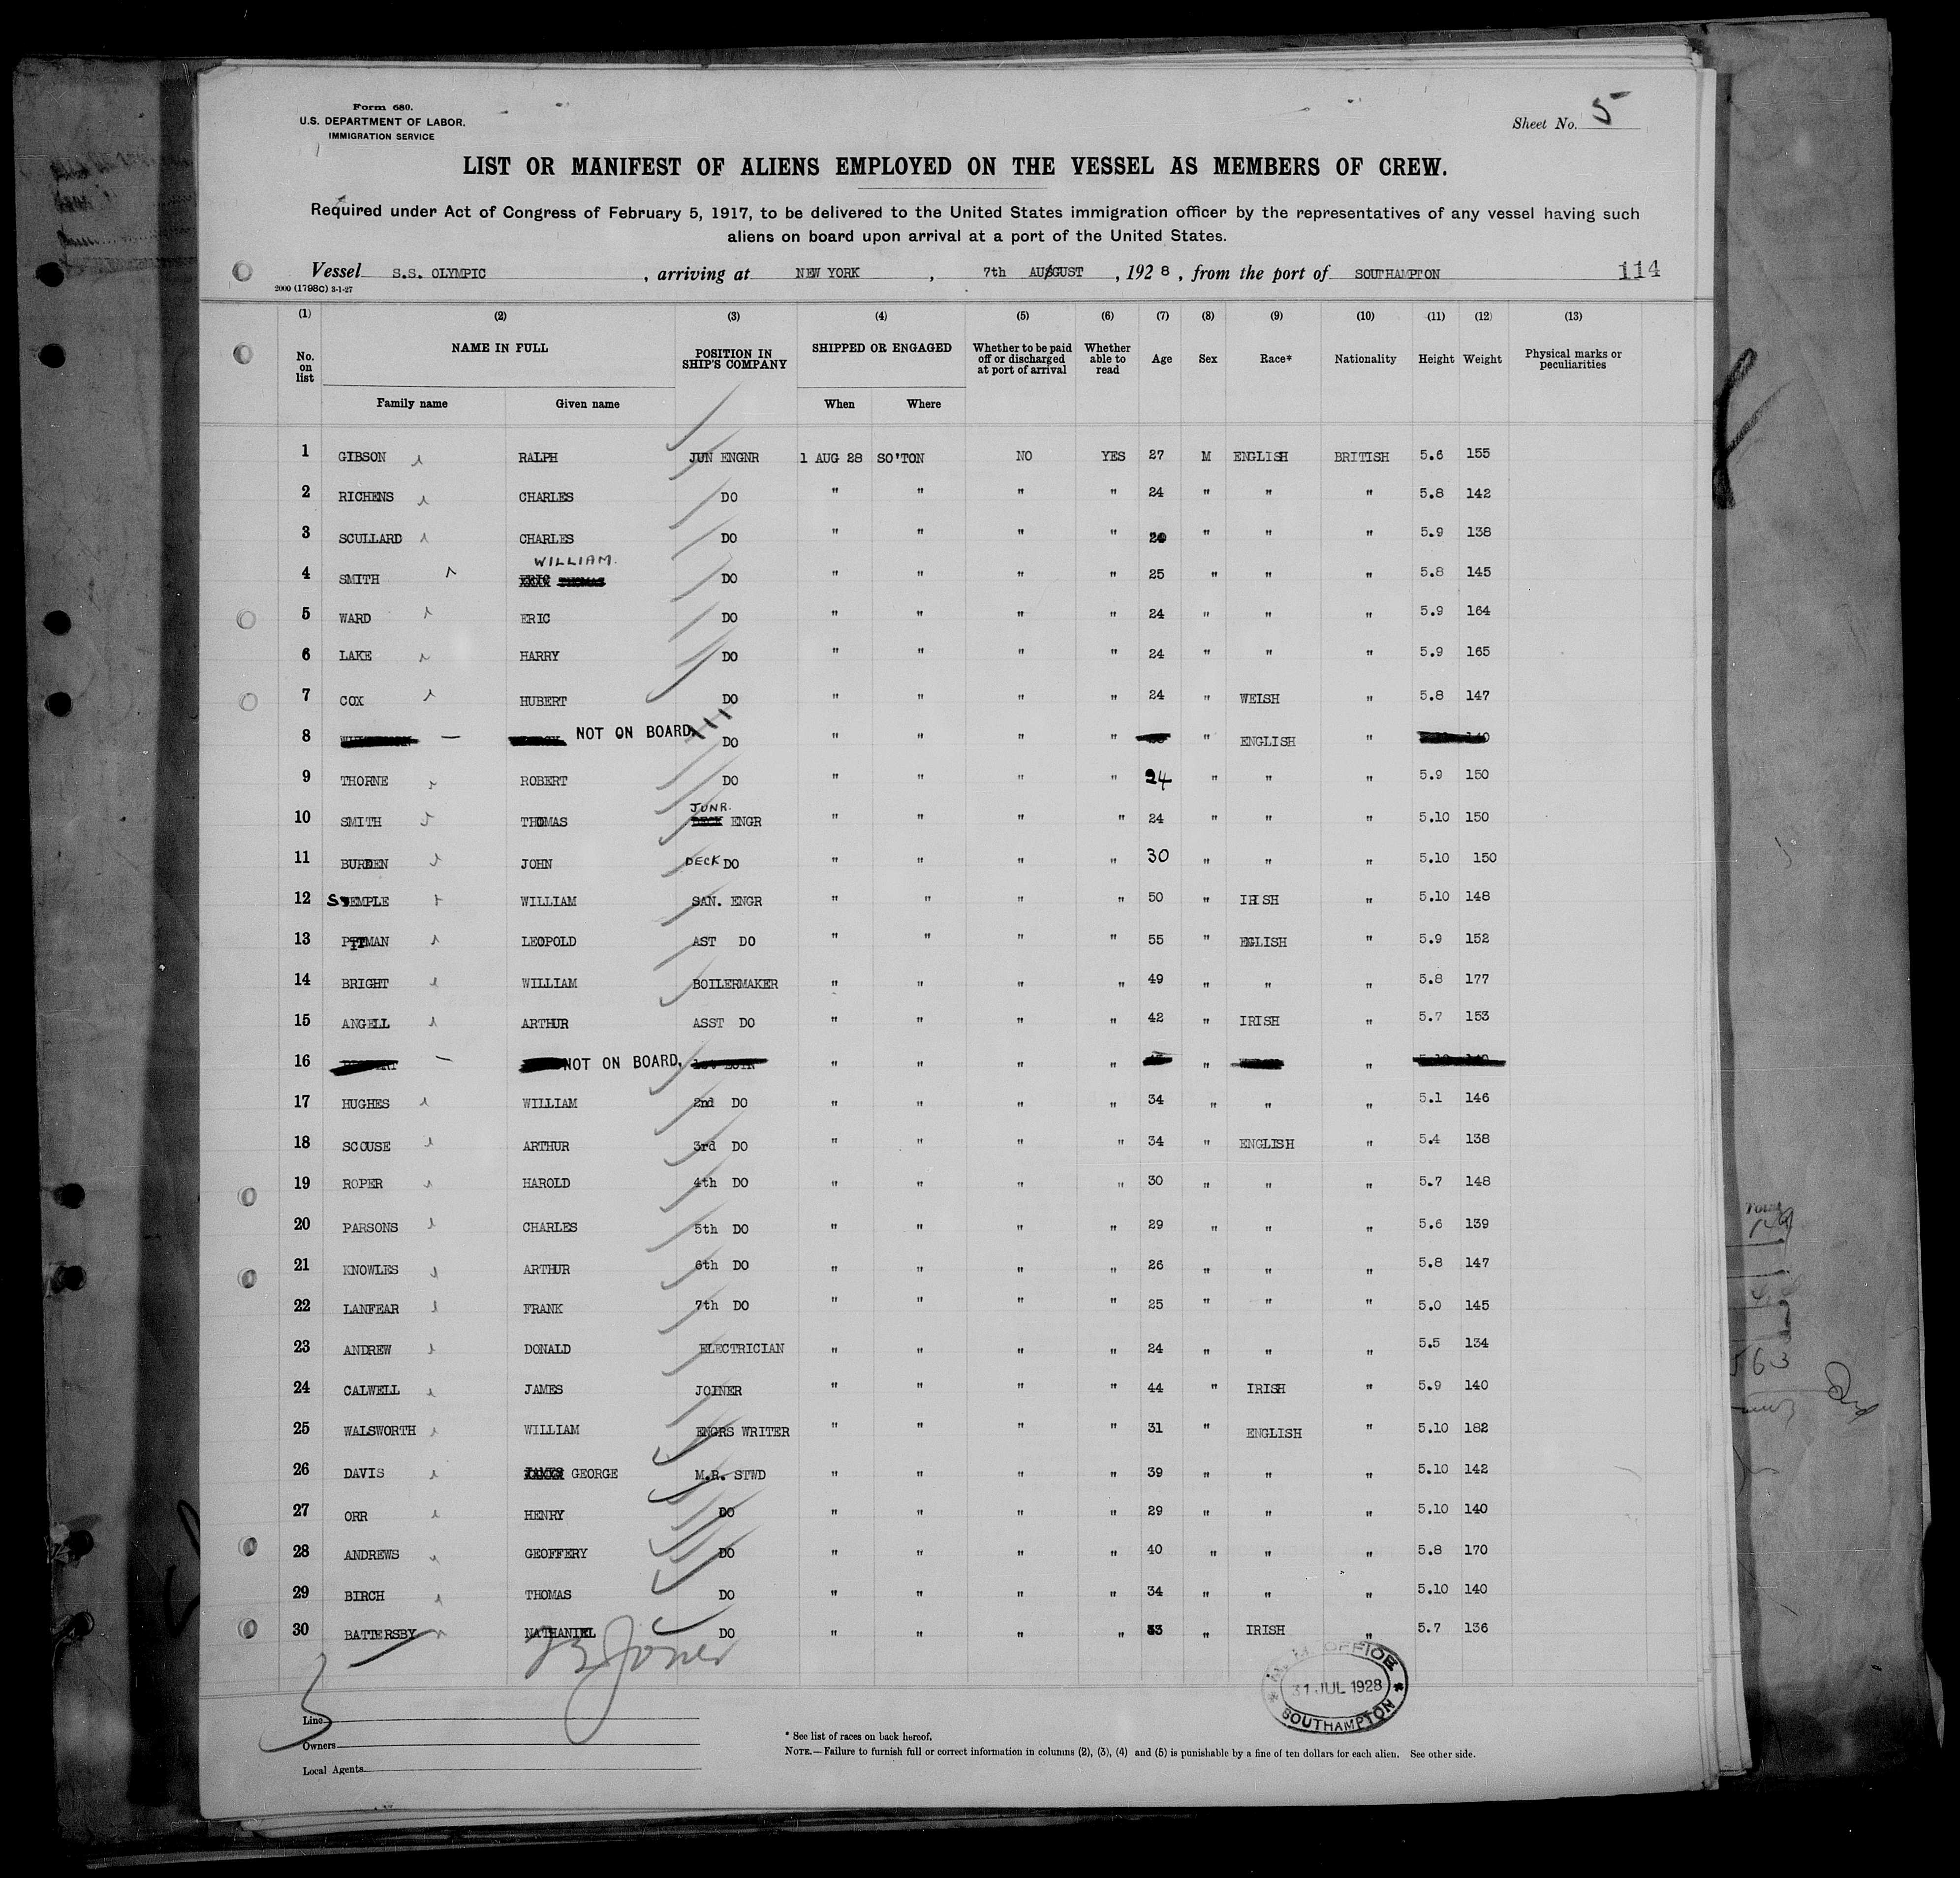 Form 680.
U.S. DEPARTMENT OF LABOR.
IMMIGRATION SERVICE
Sheet No. 5
LIST OR MANIFEST OF ALIENS EMPLOYED ON THE VESSEL AS MEMBERS OF CREW.
Required under Act of Congress of February 5, 1917, to be delivered to the United States immigration officer by the representatives of any vessel having such
aliens on board upon arrival at a port of the United States.
Vessel S.S. OLYMPIC , arriving at NEW YORK , 7th AUGUST , 1928 , from the port of SOUTHAMPTON 114
2000 (1798C) 3-1-27
(1) (2) (3) (4) (5) (6) (7) (8) (9) (10) (11) (12) (13)
No. on list NAME IN FULL POSITION IN SHIP'S COMPANY SHIPPED OR ENGAGED Whether to be paid off or discharged at port of arrival Whether able to read Age Sex Race* Nationality Height Weight Physical marks or peculiarities
Family name Given name When Where
1 GIBSON RALPH JUN ENGNR 1 AUG 28 SO'TON NO YES 27 M ENGLISH BRITISH 5.6 155
2 RICHENS CHARLES DO " " " " 24 " " " 5.8 142
3 SCULLARD CHARLES DO " " " " " " " 5.9 138
WILLIAM.
4 SMITH ERIC THOMAS DO " " " " 25 " " " 5.8 145
5 WARD ERIC DO " " " " 24 " " " 5.9 164
6 LAKE HARRY DO " " " " 24 " " " 5.9 165
7 COX HUBERT DO " " " " 24 " WELSH " 5.8 147
8 NOT ON BOARD. DO " " " " " ENGLISH " 140
9 THORNE ROBERT DO " " " " 24 " " " 5.9 150
JUNR.
10 SMITH THOMAS DECK ENGR " " " " 24 " " " 5.10 150
11 BURDEN JOHN DECK DO " " " " 30 " " " 5.10 150
12 SEMPLE WILLIAM SAN. ENGR " " " " 50 " IRISH " 5.10 148
13 PITMAN LEOPOLD AST DO " " " " 55 " EGLISH " 5.9 152
14 BRIGHT WILLIAM BOILERMAKER " " " " 49 " " " 5.8 177
15 ANGELL ARTHUR ASST DO " " " " 42 " IRISH " 5.7 153
16 NOT ON BOARD. " " " " " "
17 HUGHES WILLIAM 2nd DO " " " " 34 " " " 5.1 146
18 SCOUSE ARTHUR 3rd DO " " " " 34 " ENGLISH " 5.4 138
19 ROPER HAROLD 4th DO " " " " 30 " " " 5.7 148
20 PARSONS CHARLES 5th DO " " " " 29 " " " 5.6 139
21 KNOWLES ARTHUR 6th DO " " " " 26 " " " 5.8 147
22 LANFEAR FRANK 7th DO " " " " 25 " " " 5.0 145
23 ANDREW DONALD ELECTRICIAN " " " " 24 " " " 5.5 134
24 CALWELL JAMES JOINER " " " " 44 " IRISH " 5.9 140
25 WALSWORTH WILLIAM ENGRS WRITER " " " " 31 " ENGLISH " 5.10 182
26 DAVIS JAMES GEORGE M.R. STWD " " " " 39 " " " 5.10 142
27 ORR HENRY DO " " " " 29 " " " 5.10 140
28 ANDREWS GEOFFERY DO " " " " 40 " " " 5.8 170
29 BIRCH THOMAS DO " " " " 34 " " " 5.10 140
30 BATTERSBY NATHANIEL DO " " " " 33 " IRISH " 5.7 136
Jones
M. M. OFFICE
31 JUL 1928
SOUTHAMPTON
Line
Owners
Local Agents
* See list of races on back hereof.
NOTE.—Failure to furnish full or correct information in columns (2), (3), (4) and (5) is punishable by a fine of ten dollars for each alien. See other side.
Total
563